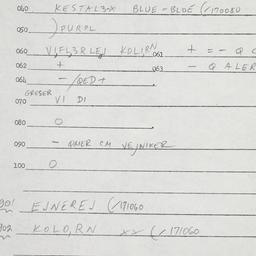 040 KESTAL3-X BLUE-BLUE (/170080
050 )PURPL
060 VIFL3RLEJ KOLI,RN 061 + = - Q C
062 + 063 - Q ALER
064 - /QED+
GRESER
070 VI DI
080 O
090 - QMER CM VEJNIKER
100 O
901 EJNEREJ (/171060
902 KOLO,RN XX (/171060